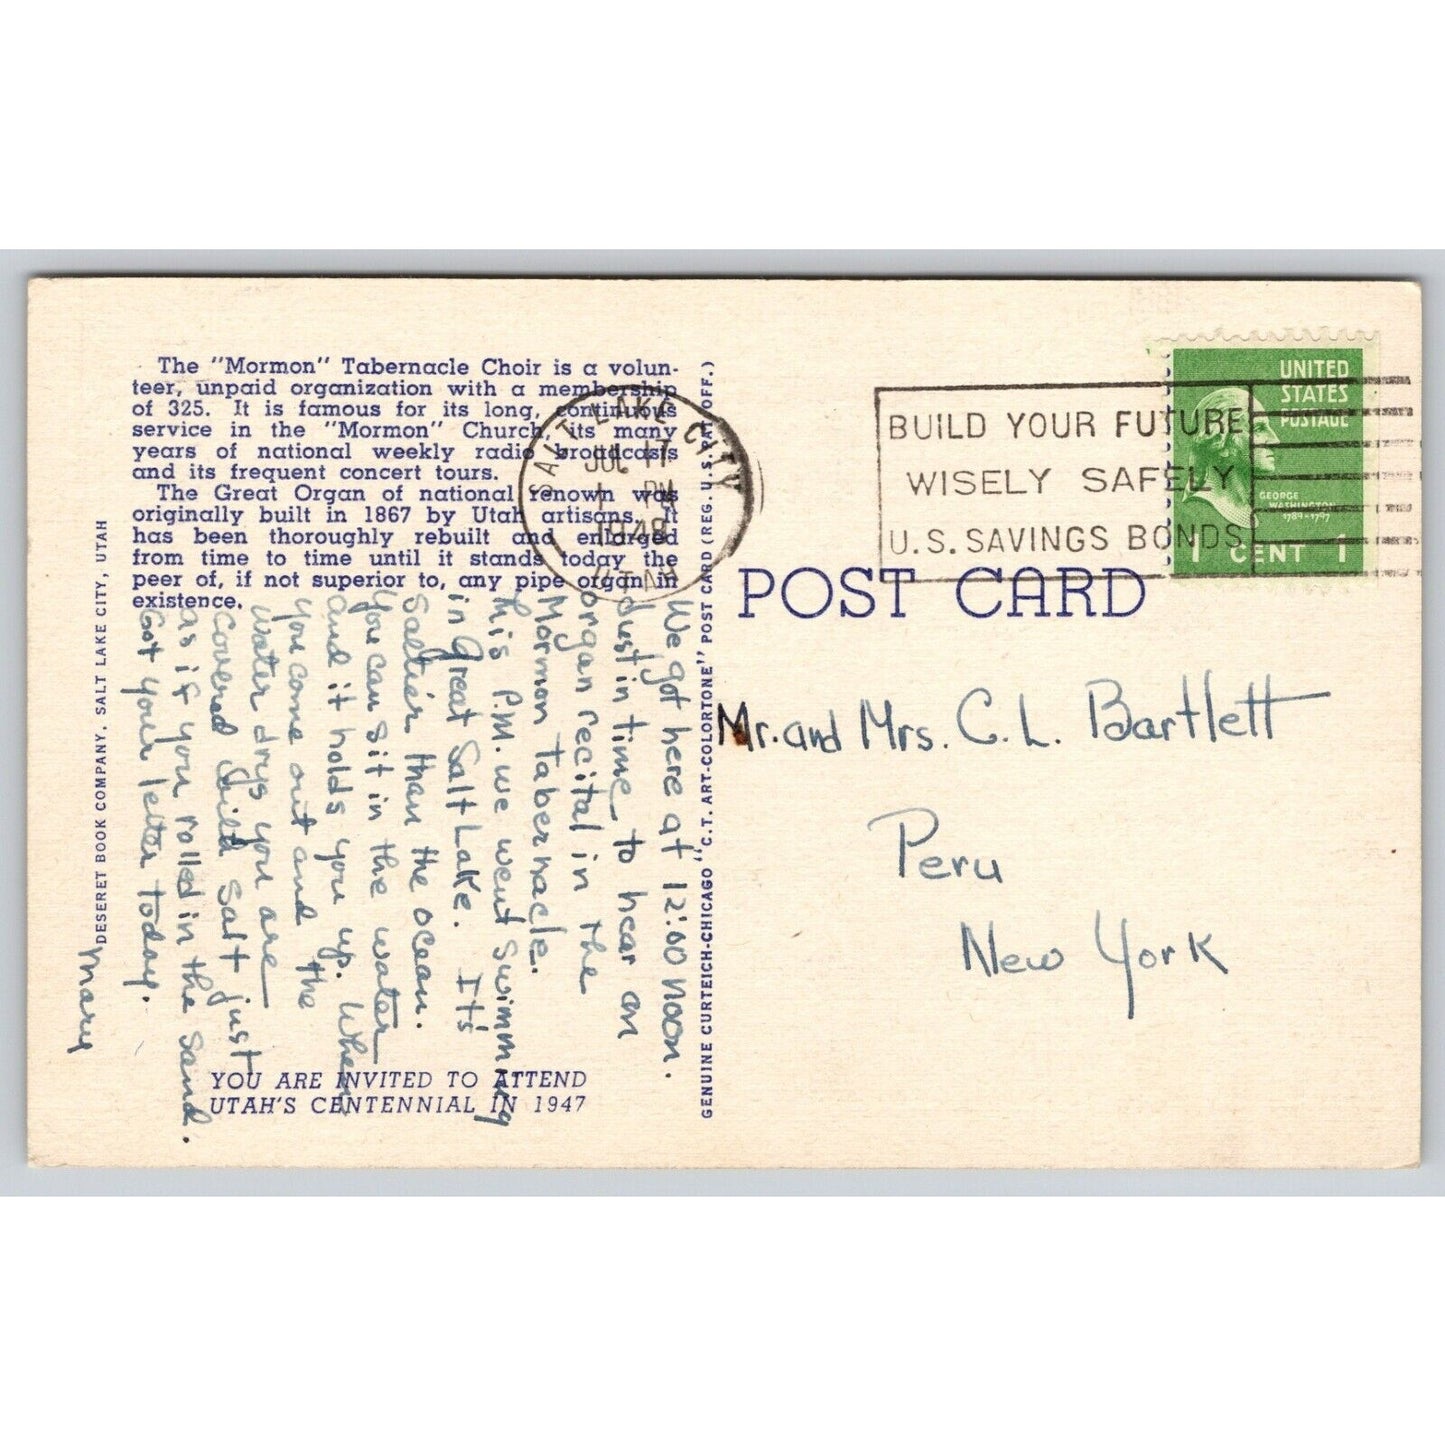 The "Mormon" Tabernacle Choir is a volun-
teer, unpaid organization with a membership
of 325. It is famous for its long, continuous
service in the "Mormon" Church, its many
years of national weekly radio broadcasts
and its frequent concert tours.
The Great Organ of national renown was
originally built in 1867 by Utah artisans. It
has been thoroughly rebuilt and enlarged
from time to time until it stands today the
peer of, if not superior to, any pipe organ in
existence.
We got here at 12:00 noon.
Just in time to hear an
organ recital in the
Mormon tabernacle.
This P.M. we went swimming
in Great Salt Lake. It's
saltier than the ocean.
You can sit in the water
and it holds you up. When
you come out and the
water drys you are
covered with salt just
as if you rolled in the sand.
Got your letter today.
Mary
DESERET BOOK COMPANY, SALT LAKE CITY, UTAH
YOU ARE INVITED TO ATTEND
UTAH'S CENTENNIAL IN 1947
GENUINE CURTEICH-CHICAGO "C.T. ART-COLORTONE" POST CARD (REG. U.S. PAT. OFF.)
SALT LAKE CITY
JUL 17
1 PM
1948
UTAH
BUILD YOUR FUTURE
WISELY SAFELY
U.S. SAVINGS BONDS
UNITED
STATES
POSTAGE
GEORGE
WASHINGTON
1789-1797
1 CENT 1
POST CARD
Mr. and Mrs. C. L. Bartlett
Peru
New York